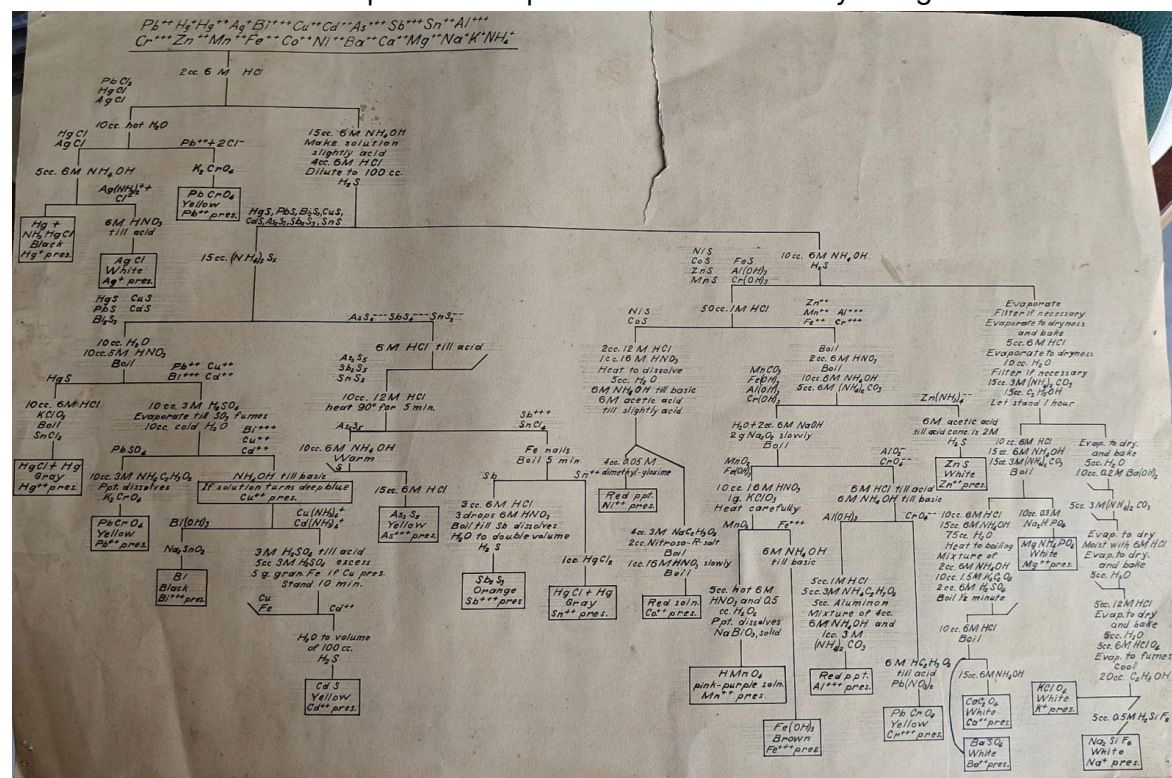 Pb++Hg+Hg++Ag+Bi+++Cu++Cd--As+++Sb+++Sn++Al+++
Cr+++Zn++Mn++Fe++Co++Ni++Ba++Ca++Mg++Na+K+NH4+
2cc. 6 M HCl
PbCl2
HgCl
AgCl
10cc. hot H2O
HgCl
AgCl
Pb+++2Cl-
5cc. 6M NH4OH
K2CrO4
PbCrO4
Yellow
Pb++ pres.
Hg +
NH2HgCl
Black
Hg+ pres.
6M HNO3
till acid
AgCl
White
Ag+ pres.
15cc. 6M NH4OH
Make solution
slightly acid
4cc. 6M HCl
Dilute to 100 cc.
H2S
HgS, PbS, Bi2S3, CuS,
CdS, As2S3, Sb2S3, SnS
15cc. (NH4)2S2
HgS CuS
PbS CdS
Bi2S3
10cc. H2O
10cc. 5M HNO3
Boil
HgS
Pb++ Cu++
Bi+++ Cd++
10cc. 6M HCl
KClO3
Boil
SnCl2
HgCl + Hg
Gray
Hg++ pres.
10cc. 3M H2SO4
Evaporate till SO3 fumes
10cc. cold H2O
PbSO4
Bi+++
Cu++
Cd++
10cc. 3M NH4C2H3O2
Ppt. dissolves
K2CrO4
PbCrO4
Yellow
Pb++ pres.
NH4OH till basic
If solution turns deep blue
Cu++ pres.
Bi(OH)3
Cu(NH3)4++
Cd(NH3)4++
Na2SnO2
Bi
Black
Bi+++ pres.
3M H2SO4 till acid
5cc. 3M H2SO4 excess
5 g. gran. Fe if Cu pres.
Stand 10 min.
Cu
Fe
Cd++
H2O to volume
of 100 cc.
H2S
CdS
Yellow
Cd++ pres.
AsS4--- SbS4--- SnS3--
6M HCl till acid
As2S5
Sb2S5
SnS2
10cc. 12M HCl
heat 90° for 5 min.
As2S5
Sb+++
SnCl4
10cc. 6M NH4OH
Warm
S
15cc. 6M HCl
As2S5
Yellow
As+++ pres.
Fe nails
Boil 5 min.
Sb
Sn++
3cc. 6M HCl
3 drops 6M HNO3
Boil till Sb dissolves
H2O to double volume
H2S
Sb2S3
Orange
Sb+++ pres.
1cc. HgCl2
HgCl + Hg
Gray
Sn++ pres.
10cc. 6M NH4OH
H2S
NiS
CoS FeS
ZnS Al(OH)3
MnS Cr(OH)3
50cc. 1M HCl
NiS
CoS
Zn++
Mn++ Al+++
Fe++ Cr+++
2cc. 12M HCl
1cc. 16M HNO3
Heat to dissolve
5cc. H2O
6M NH4OH till basic
6M acetic acid
till slightly acid
4cc. 0.05 M
dimethyl-glyoxime
Red ppt.
Ni++ pres.
4cc. 3M NaC2H3O2
2cc. Nitroso-R-salt
Boil
1cc. 16M HNO3, slowly
Boil
Red soln.
Co++ pres.
Boil
2cc. 6M HNO3
Boil
10cc. 6M NH4OH
5cc. 6M (NH4)2CO3
MnCO3
Fe(OH)3
Al(OH)3
Cr(OH)3
Zn(NH3)4--
H2O+2cc. 6M NaOH
2g Na2O2 slowly
Boil
MnO2
Fe(OH)3
AlO2-
CrO4--
10cc. 16M HNO3
1g. KClO3
Heat carefully
MnO2
Fe+++
5cc. hot 6M
HNO3 and 0.5
cc. H2O2
Ppt. dissolves
NaBiO3, solid
HMnO4
pink-purple soln.
Mn++ pres.
6M NH4OH
till basic
Fe(OH)3
Brown
Fe+++ pres.
6M HCl till acid
6M NH4OH till basic
Al(OH)3
CrO4--
5cc. 1M HCl
5cc. 3M NH4C2H3O2
5cc. Aluminon
Mixture of 4cc.
6M NH4OH and
1cc. 3 M
(NH4)2CO3
Red ppt.
Al+++ pres.
6 M HC2H3O2
till acid
Pb(NO3)2
PbCrO4
Yellow
Cr+++ pres.
6M acetic acid
till acid conc. is 2M
H2S
ZnS
White
Zn++ pres.
Evaporate
Filter if necessary
Evaporate to dryness
and bake
5cc. 6M HCl
Evaporate to dryness
10cc. H2O
Filter if necessary
15cc. 3M (NH4)2CO3
15cc. C2H5OH
Let stand 1 hour
10cc. 6M HCl
15cc. 6M NH4OH
15cc. 3M (NH4)2CO3
Boil
10cc. 6M HCl
15cc. 6M NH4OH
75cc. H2O
Heat to boiling
Mixture of
2cc. 6M NH4OH
10cc. 1.5M H2C2O4
2cc. 6M H2SO4
Boil ½ minute
10cc. 6M HCl
Boil
15cc. 6M NH4OH
CaC2O4
White
Ca++ pres.
BaSO4
White
Ba++ pres.
10cc. 0.3M
Na2HPO4
MgNH4PO4
White
Mg++ pres.
Evap. to dry.
and bake
5cc. H2O
10cc. 0.2M Ba(OH)2
5cc. 3M (NH4)2CO3
Evap. to dry
Moist with 6M HCl
Evap. to dry.
and bake
5cc. H2O
5cc. 12M HCl
Evap. to dry
and bake
5cc. H2O
5cc. 6M HClO4
Evap. to fumes
Cool
20cc. C2H5OH
KClO4
White
K+ pres.
5cc. 0.5M H2SiF6
Na2SiF6
White
Na+ pres.